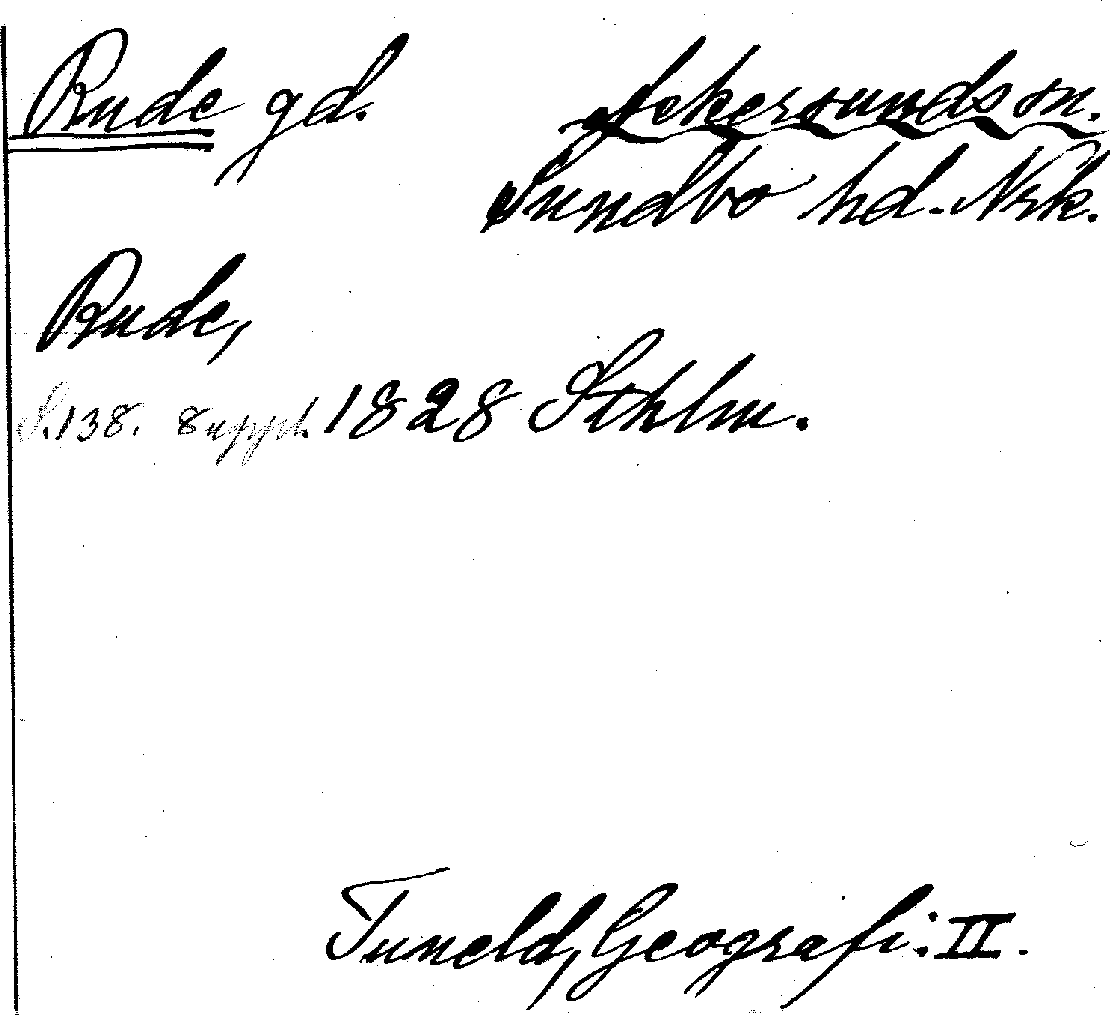 Rude gd. Askersunds sn.
Sundbo hd. Nrk.
Rude,
S. 138. suppl. 1828 Sthlm.
Tuneld, Geografi: II.